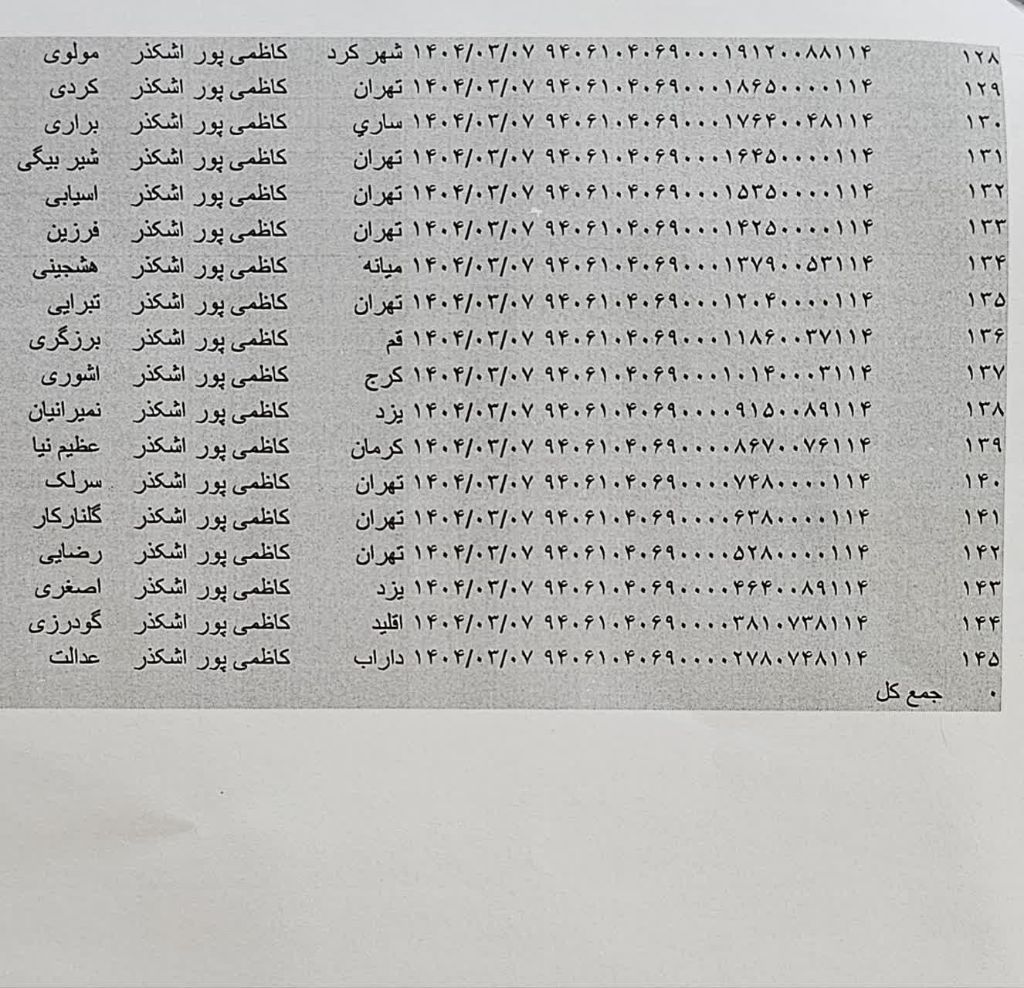 ۱۲۸ ۹۴۰۶۱۰۴۰۶۹۰۰۰۱۹۱۲۰۰۸۸۱۱۴ ۱۴۰۴/۰۳/۰۷ شهر کرد کاظمی پور اشکذر مولوی
۱۲۹ ۹۴۰۶۱۰۴۰۶۹۰۰۰۱۸۶۵۰۰۰۰۱۱۴ ۱۴۰۴/۰۳/۰۷ تهران کاظمی پور اشکذر کردی
۱۳۰ ۹۴۰۶۱۰۴۰۶۹۰۰۰۱۷۶۴۰۰۴۸۱۱۴ ۱۴۰۴/۰۳/۰۷ ساري کاظمی پور اشکذر براری
۱۳۱ ۹۴۰۶۱۰۴۰۶۹۰۰۰۱۶۴۵۰۰۰۰۱۱۴ ۱۴۰۴/۰۳/۰۷ تهران کاظمی پور اشکذر شیر بیگی
۱۳۲ ۹۴۰۶۱۰۴۰۶۹۰۰۰۱۵۳۵۰۰۰۰۱۱۴ ۱۴۰۴/۰۳/۰۷ تهران کاظمی پور اشکذر اسیابی
۱۳۳ ۹۴۰۶۱۰۴۰۶۹۰۰۰۱۴۲۵۰۰۰۰۱۱۴ ۱۴۰۴/۰۳/۰۷ تهران کاظمی پور اشکذر فرزین
۱۳۴ ۹۴۰۶۱۰۴۰۶۹۰۰۰۱۳۷۹۰۰۵۳۱۱۴ ۱۴۰۴/۰۳/۰۷ میانه کاظمی پور اشکذر هشجینی
۱۳۵ ۹۴۰۶۱۰۴۰۶۹۰۰۰۱۲۰۴۰۰۰۰۱۱۴ ۱۴۰۴/۰۳/۰۷ تهران کاظمی پور اشکذر تبرایی
۱۳۶ ۹۴۰۶۱۰۴۰۶۹۰۰۰۱۱۸۶۰۰۳۷۱۱۴ ۱۴۰۴/۰۳/۰۷ قم کاظمی پور اشکذر برزگری
۱۳۷ ۹۴۰۶۱۰۴۰۶۹۰۰۰۱۰۱۴۰۰۰۳۱۱۴ ۱۴۰۴/۰۳/۰۷ کرج کاظمی پور اشکذر اشوری
۱۳۸ ۹۴۰۶۱۰۴۰۶۹۰۰۰۰۹۱۵۰۰۸۹۱۱۴ ۱۴۰۴/۰۳/۰۷ یزد کاظمی پور اشکذر نمیرانیان
۱۳۹ ۹۴۰۶۱۰۴۰۶۹۰۰۰۰۸۶۷۰۰۷۶۱۱۴ ۱۴۰۴/۰۳/۰۷ کرمان کاظمی پور اشکذر عظیم نیا
۱۴۰ ۹۴۰۶۱۰۴۰۶۹۰۰۰۰۷۴۸۰۰۰۰۱۱۴ ۱۴۰۴/۰۳/۰۷ تهران کاظمی پور اشکذر سرلک
۱۴۱ ۹۴۰۶۱۰۴۰۶۹۰۰۰۰۶۳۸۰۰۰۰۱۱۴ ۱۴۰۴/۰۳/۰۷ تهران کاظمی پور اشکذر گلنارکار
۱۴۲ ۹۴۰۶۱۰۴۰۶۹۰۰۰۰۵۲۸۰۰۰۰۱۱۴ ۱۴۰۴/۰۳/۰۷ تهران کاظمی پور اشکذر رضایی
۱۴۳ ۹۴۰۶۱۰۴۰۶۹۰۰۰۰۴۶۴۰۰۸۹۱۱۴ ۱۴۰۴/۰۳/۰۷ یزد کاظمی پور اشکذر اصغری
۱۴۴ ۹۴۰۶۱۰۴۰۶۹۰۰۰۰۳۸۱۰۷۳۸۱۱۴ ۱۴۰۴/۰۳/۰۷ اقلید کاظمی پور اشکذر گودرزی
۱۴۵ ۹۴۰۶۱۰۴۰۶۹۰۰۰۰۲۷۸۰۷۴۸۱۱۴ ۱۴۰۴/۰۳/۰۷ داراب کاظمی پور اشکذر عدالت
۰ جمع کل